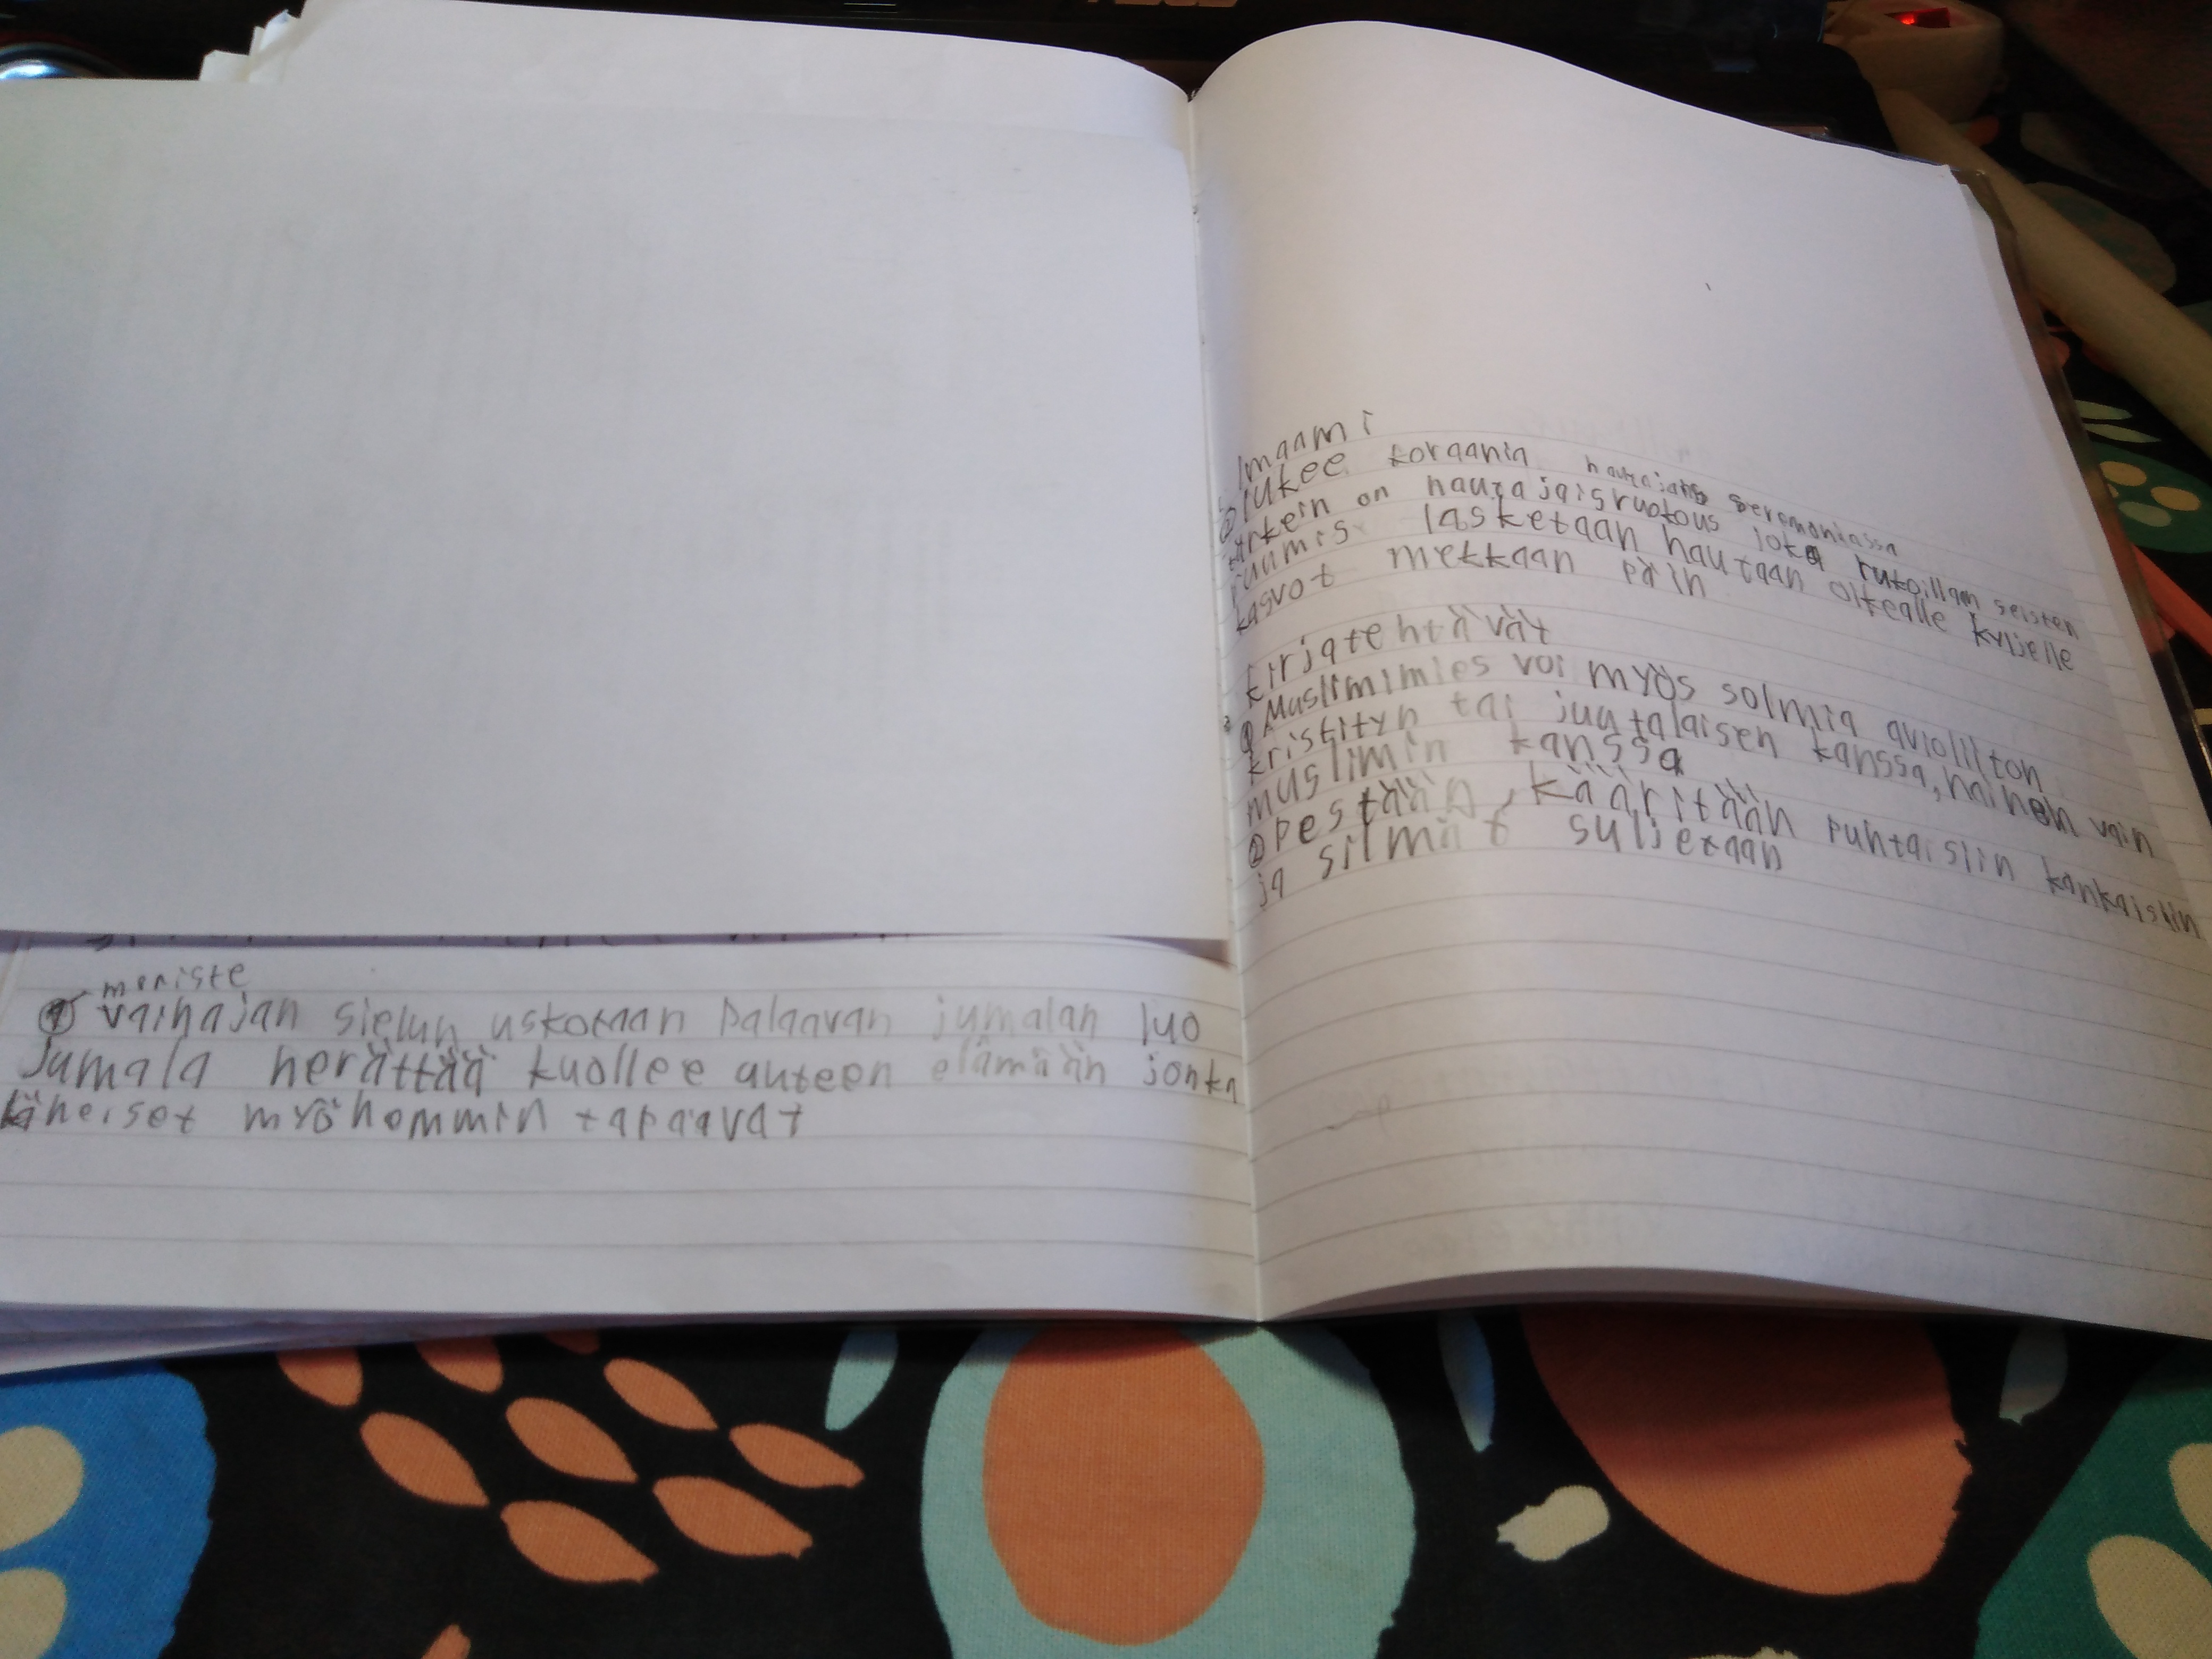 moniste
① vainajan sielun uskotaan palaavan jumalan luo
Jumala herättää kuollee uuteen elämään jonka
läheiset myöhommin tapaavat
Imaami
② lukee koraania hautajais seremoniassa
tärkein on hautajaisrukous joka rukoillaan seisten
ruumis lasketaan hautaan oikealle kyljelle
kasvot mekkaan päin
kirjatehtävät
① Muslimimies voi myös solmia avioliiton
kristityn tai juutalaisen kanssa, nainen vain
muslimin kanssa
② pestään, kääritään puhtaisiin kankaisiin
ja silmät suljetaan